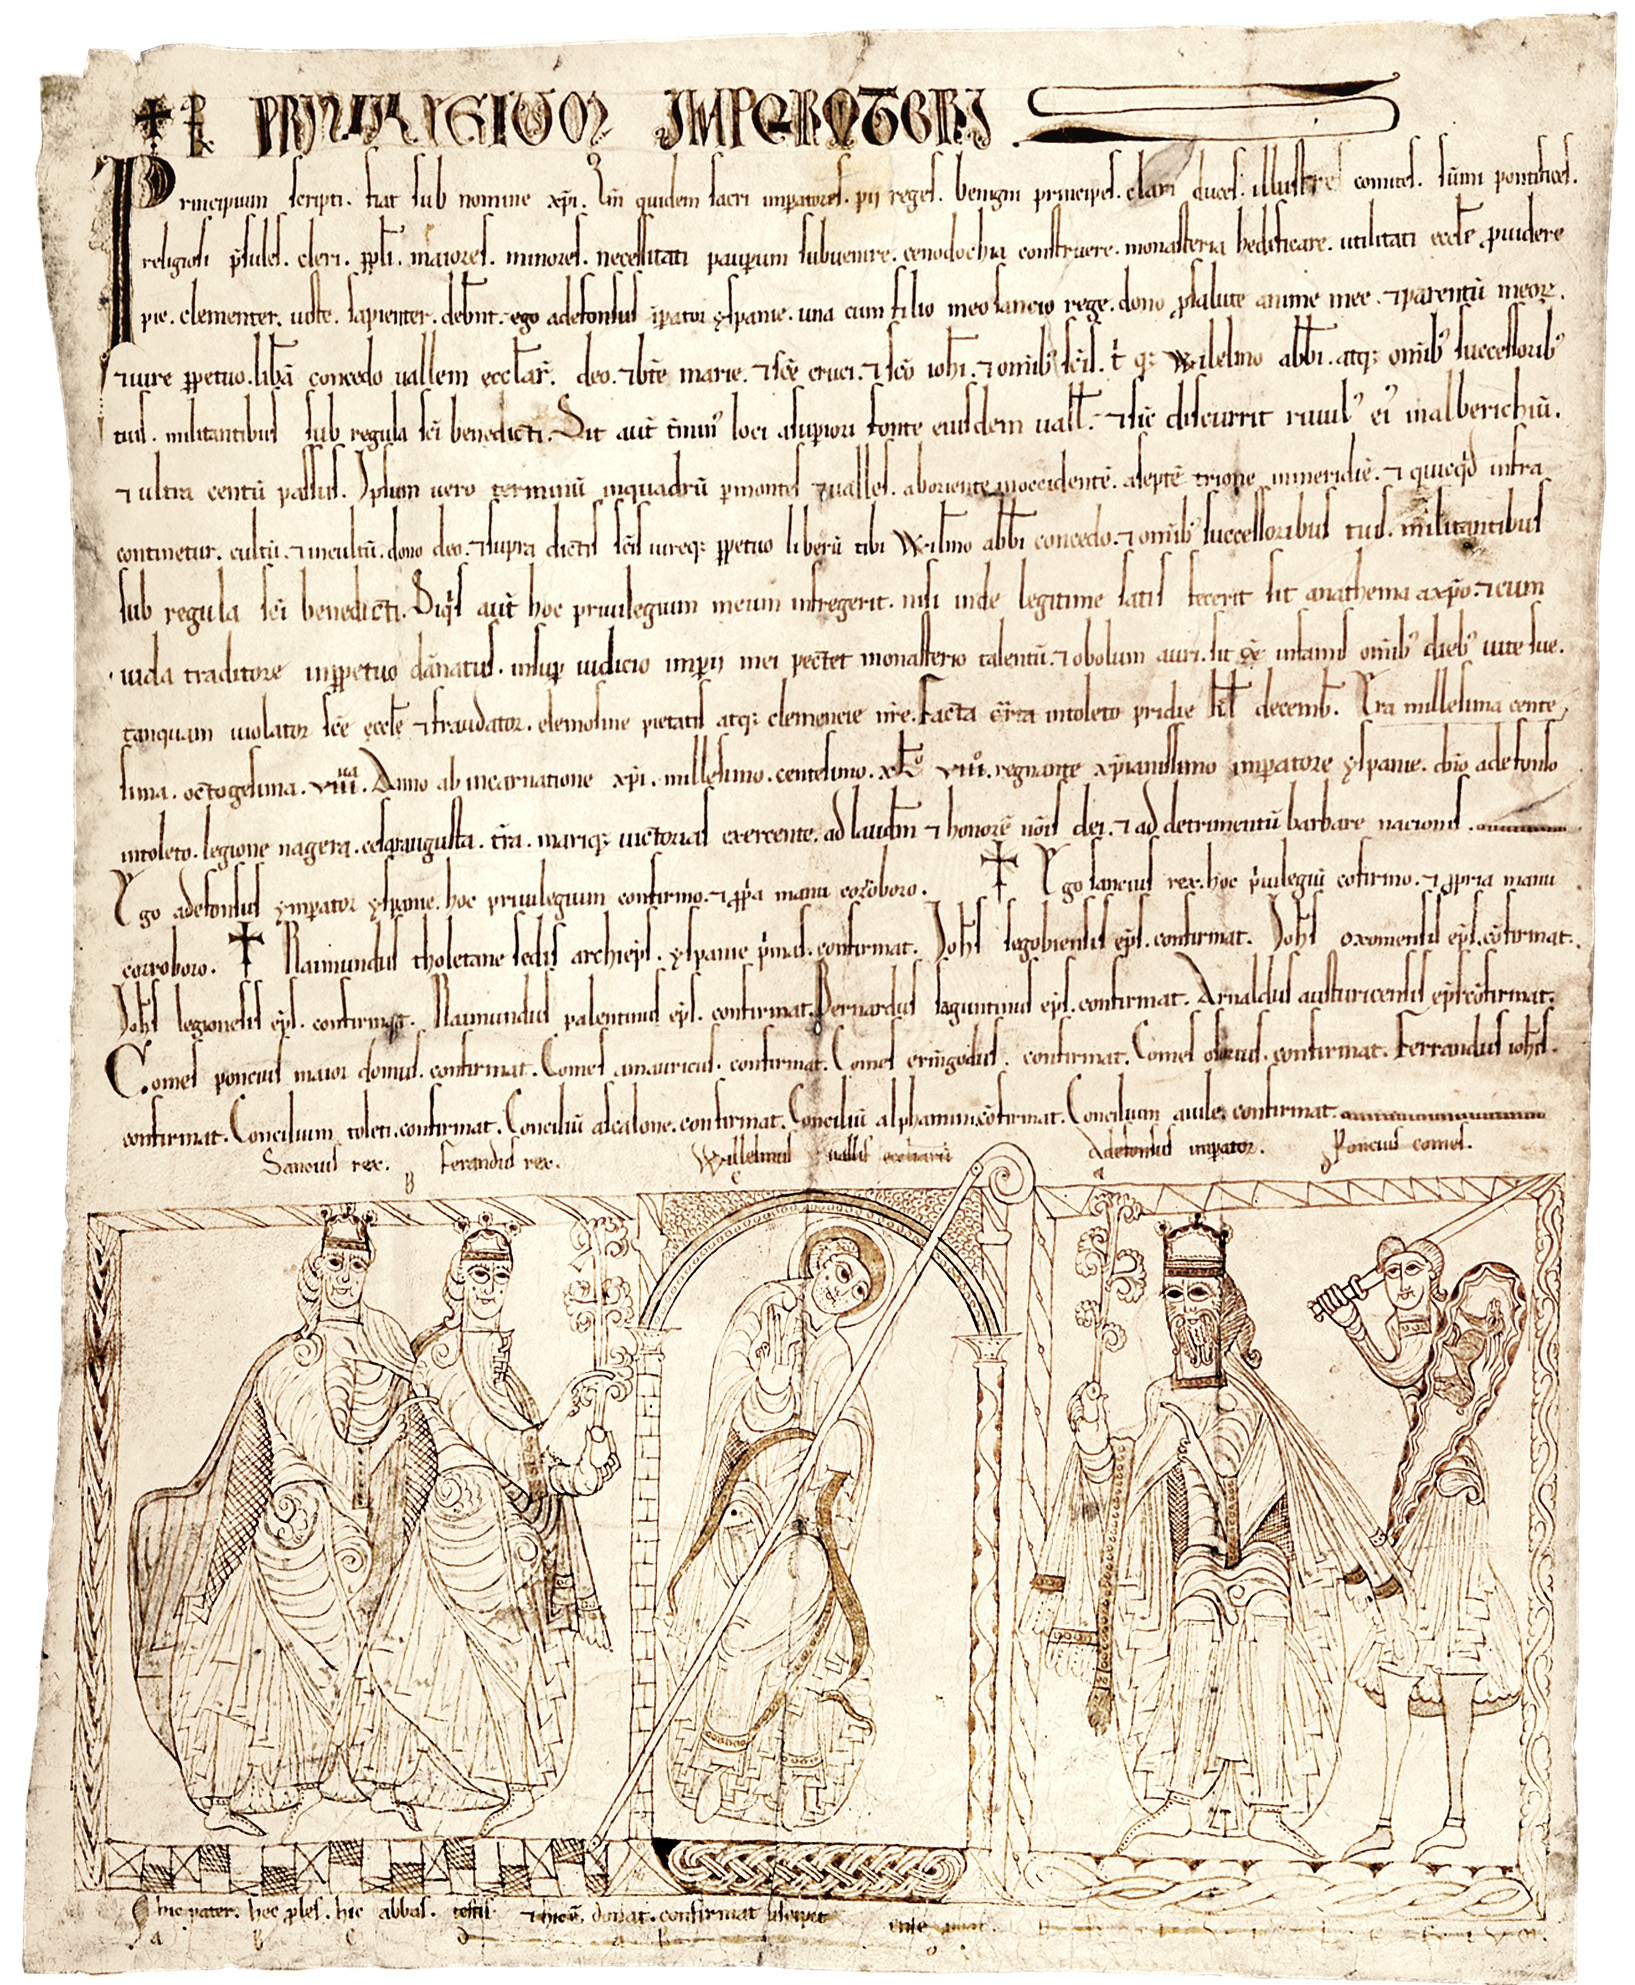 PRIVILEGIUM IMPERATORI
Principium scripti. fiat sub nomine xp̄i. Cū quidem sacri imp̄atores. pii reges. benigni principes. clari duces. illustres comites. sūmi pontifices.
religiosi p̄sules. cleri. pp̄li. maiores. minores. necessitati paup̄um subvenire. cenodochia construere. monasteria hedificare. utilitati eccl̄e p̄uidere
pie. clementer. iuste. sapienter. deb̄nt. ego adefonsus īp̄ator yspanie. una cum filio meo sancio rege. dono p̄ salute anime mee. ⁊ parentū meor̄.
⁊ iure pp̄etuo. lib̄ā concedo vallem eccl̄ar̄. deo. ⁊ bt̄e marie. ⁊ sc̄e cruci. ⁊ sc̄o ioh̄i. ⁊ om̄ib᷒ sc̄is. t̄ qꝫ Wilelmo abb̄i. atqꝫ om̄ib᷒ successorib᷒
tuis. militantibus sub regula sc̄i benedicti. Sit aut̄ t̄min᷒ loci a sup̄iori fonte eiusdem vall̄. ⁊ sic̄ discurrit rivul᷒ ei᷒ in alberichiū.
⁊ ultra centū passus. Ipsum vero terminū in quadrū p̄ montes ⁊ valles. ab oriente in occidentē. a septē trione in meridiē. ⁊ quicq̄d infra
continetur. cultū. ⁊ incultū. dono deo. ⁊ supra dictis sc̄is iureqꝫ pp̄etuo liberū tibi Wil̄mo abb̄i concedo. ⁊ om̄ib᷒ successoribus tuis. militantibus
sub regula sc̄i benedicti. Siq̄s aut̄ hoc privilegium meum infregerit. nisi inde legitime satis fecerit sit anathema a xp̄o. ⁊ cum
iuda traditore in pp̄etuo dānatus. insup̄ iudicio imp̄ii mei pectet monasterio talentū. ⁊ obolum auri. sit infamis om̄ib᷒ dieb᷒ vite sue.
tanquam violator sc̄e eccl̄e ⁊ fraudator. elemosine pietatis atqꝫ clemencie nr̄e. Facta c̄ta in toleto pridie kl̄ decemb̄. Era millesima cente
sima. octogesima. viiii. Anno ab incarnatione xp̄i. millesimo. centesimo. xLº viiiº. regnante xp̄ianissimo imperatore yspanie. dn̄o adefonso
in toleto. legione nagera. cesaraugusta. t̄ra. mariqꝫ victorias exercente. ad laudem ⁊ honorē nōis dei. ⁊ ad detrimentū barbare nacionis.
Ego adefonsus ymperator yspanie. hoc privilegium confirmo. ⁊ pp̄a manu corroboro. ✝ Ego sancius rex. hoc p̄vilegiū cōfirmo. ⁊ propria manu
corroboro. ✝ Raimundus tholetane sedis archiep̄s. yspanie p̄mas. confirmat. Joh̄s segobiensis ep̄s. confirmat. Joh̄s oxomensis ep̄s. cōfirmat.
Joh̄s legionesis ep̄s. confirmat. Raimundus palentinus ep̄s. confirmat. Bernardus saguntinus ep̄s. confirmat. Arnaldus austuricensis ep̄s cōfirmat.
Comes poncius maior domus. confirmat. Comes amauricus. confirmat. Comes ermēgodus. confirmat. Comes confirmat. Ferrandus ioh̄s.
confirmat. Concilium toleti. confirmat. Conciliū ascalone. confirmat. Conciliū alphamim. cōfirmat. Concilium avile. confirmat.
Sancius rex. Ferandus rex. Willelmus vallis eccl̄iarū Adefonsus imperator. Poncius comes.
B C a
hic pater. hec proles. hic abbas. testis ⁊ donat. confirmat suscipit
a B C D a B